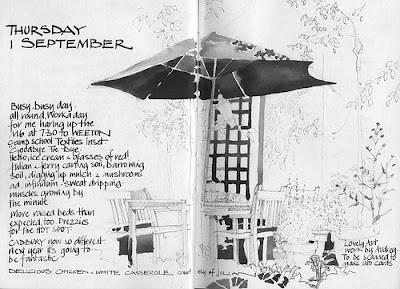 THURSDAY
1 SEPTEMBER
Busy. busy day
all round. Workaday
for me haring up the
M6 at 730 to WEETON
camp school Textiles Inset
Goodbye Tie-Dye
Hello, ice cream & glasses of red!
Julian & Jerry carting soil, barrowing
soil, digging up mulch & mushrooms
ad. infinitum - sweat dripping
muscles growing by
the minute
more raised beds than
expected, too. Prezzies
for the HOT SPOT
CADBURY now so different
next year it's going to
be fantastic
DELICIOUS CHICKEN & WHITE CASSEROLE
Lovely Art
work by Audrey
To be scanned to
make into cards